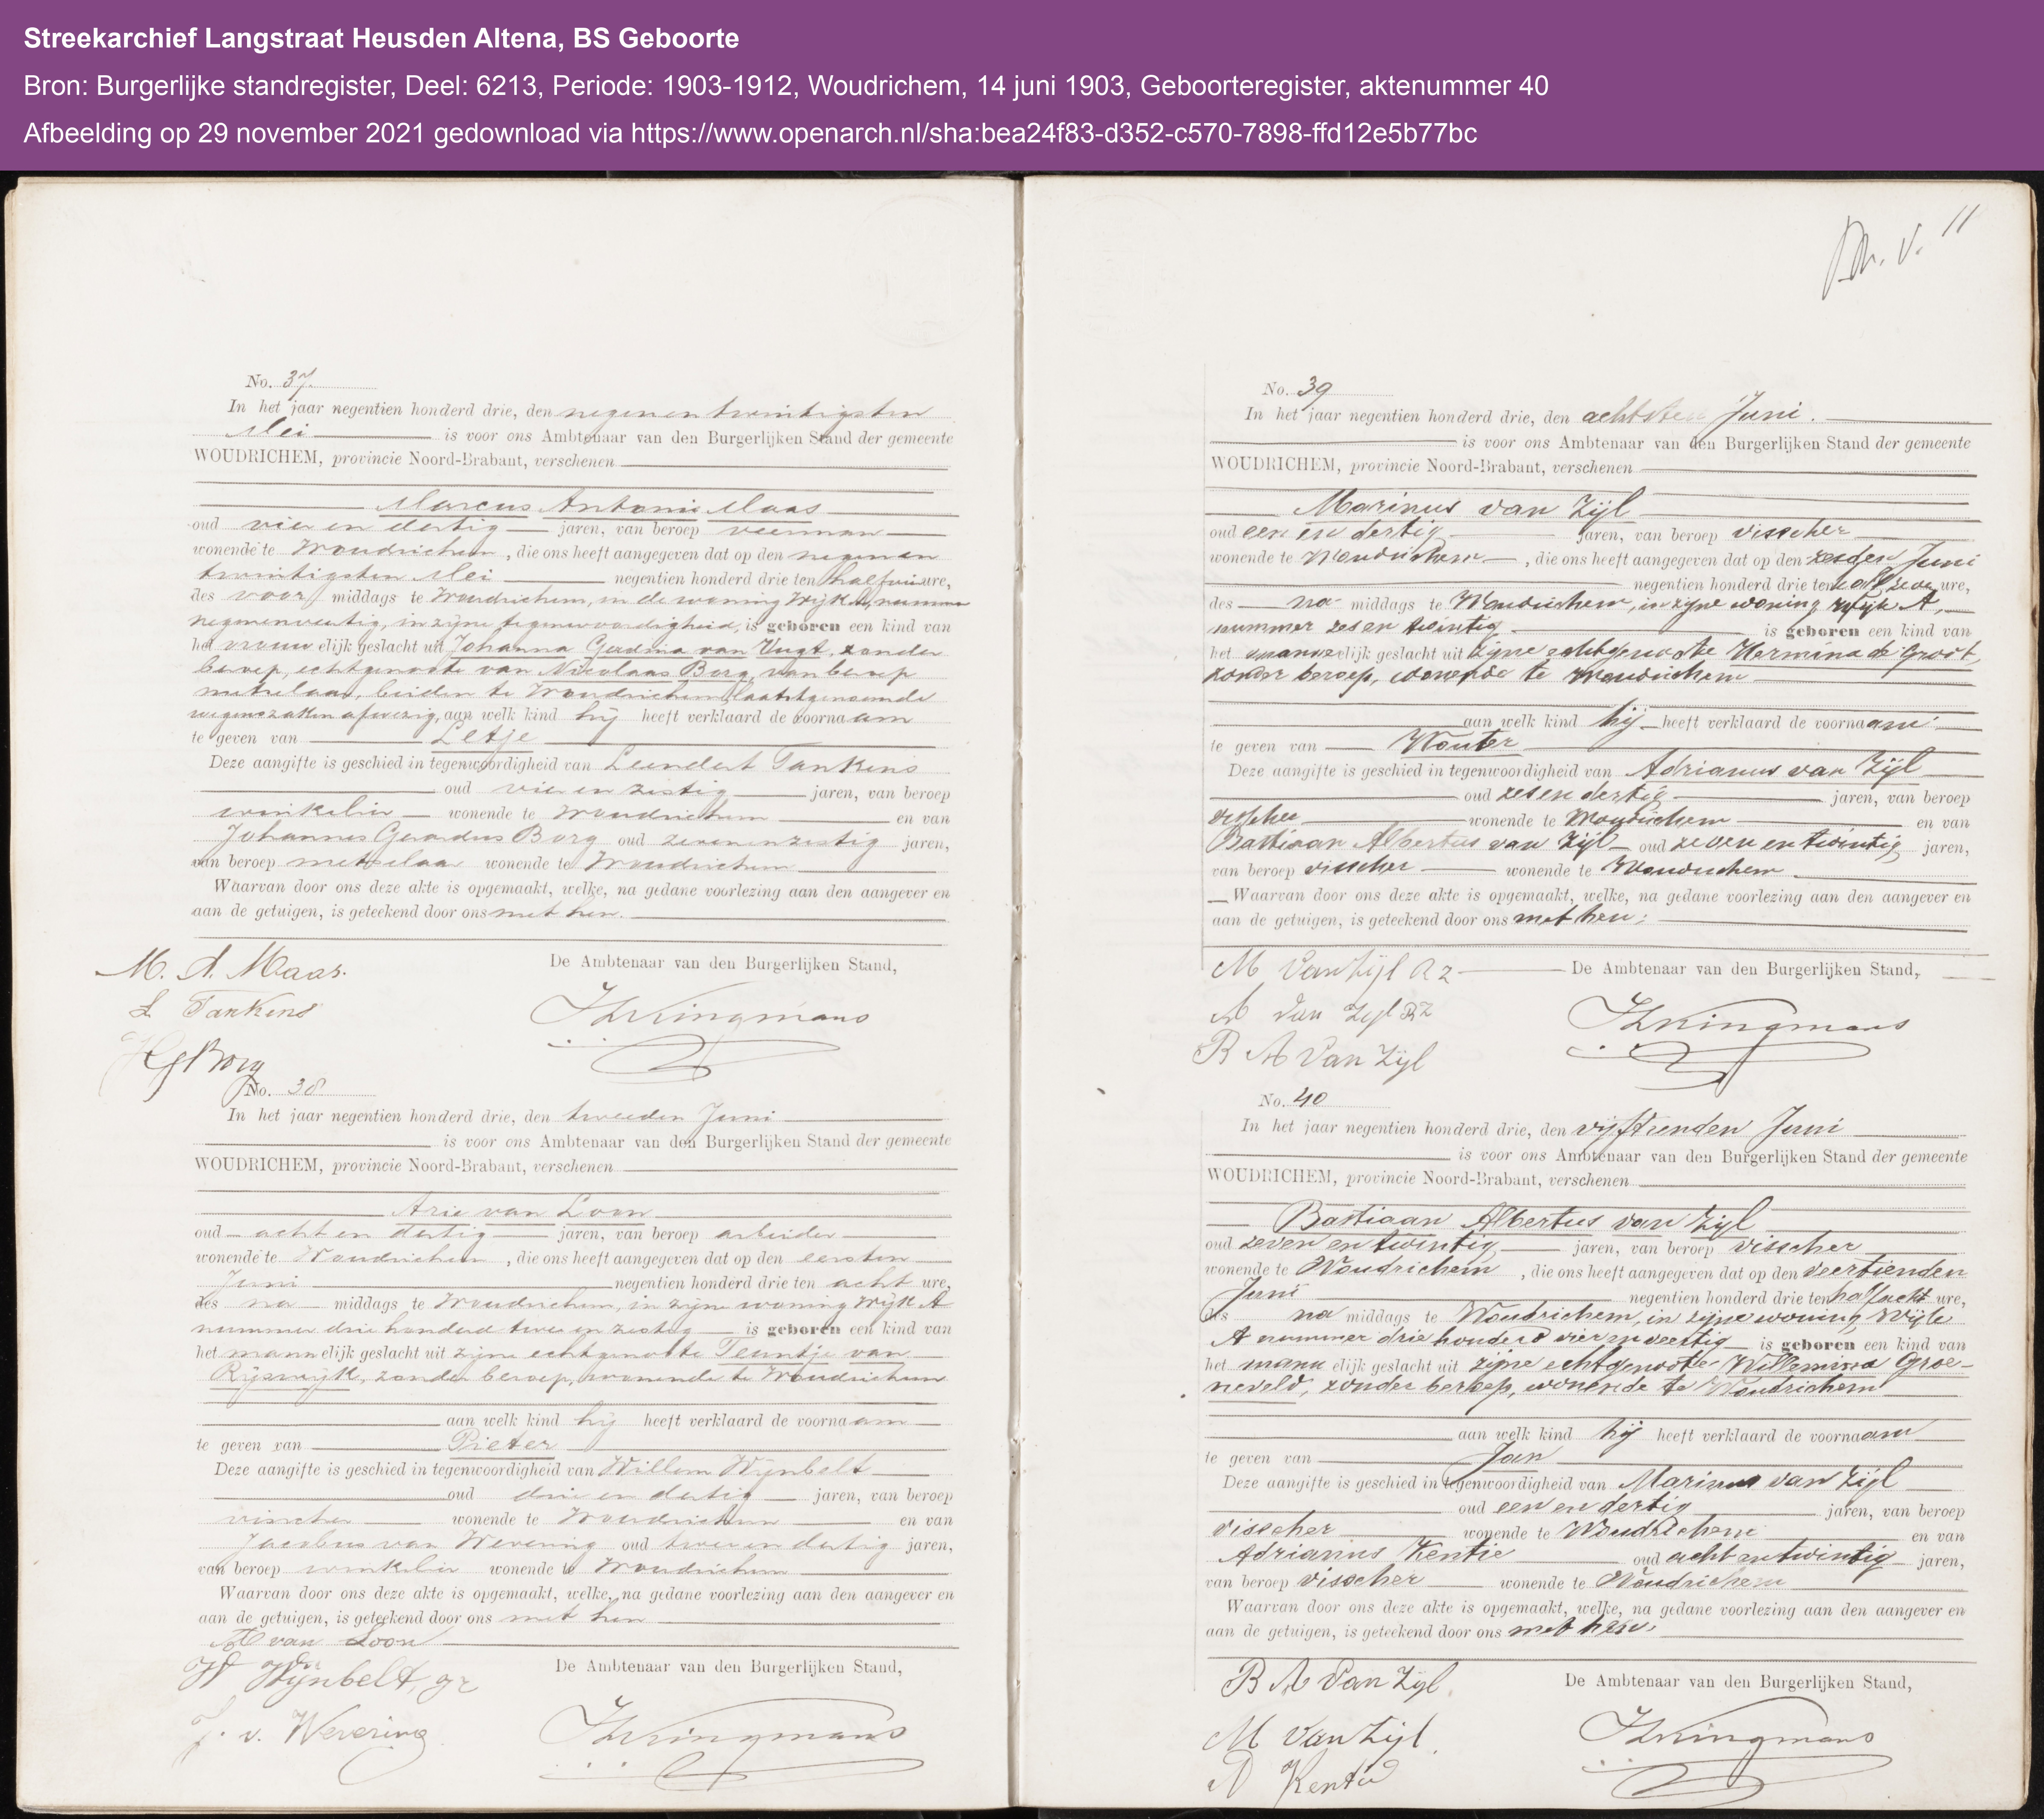 Streekarchief Langstraat Heusden Altena, BS Geboorte
Bron: Burgerlijke standregister, Deel: 6213, Periode: 1903-1912, Woudrichem, 14 juni 1903, Geboorteregister, aktenummer 40
Afbeelding op 29 november 2021 gedownload via https://www.openarch.nl/sha:bea24f83-d352-c570-7898-ffd12e5b77bc
No. 37.
In het jaar negentien honderd drie, den negenentwintigsten
Mei is voor ons Ambtenaar van den Burgerlijken Stand der gemeente
WOUDRICHEM, provincie Noord-Brabant, verschenen
Marcus Antonie Maas
oud vier en dertig jaren, van beroep veerman
wonende te Woudrichem, die ons heeft aangegeven dat op den negenen
twintigsten Mei negentien honderd drie ten half ure,
des voor middags te Woudrichem, in de woning Wijk A, nummer
negenenveertig, in zijne tegenwoordigheid, is geboren een kind van
het vrouwelijk geslacht uit Johanna Gerdina van Vugt, zonder
beroep, echtgenoote van Nicolaas Borg, van beroep
metselaar, beiden te Woudrichem, laatstgenoemde
wegens zaken afwezig, aan welk kind hij heeft verklaard de voornaam
te geven van Letje
Deze aangifte is geschied in tegenwoordigheid van Leendert Tankens
oud vier en zestig jaren, van beroep
winkelier wonende te Woudrichem en van
Johannes Gerardus Borg oud zevenenzestig jaren,
van beroep metselaar wonende te Woudrichem
Waarvan door ons deze akte is opgemaakt, welke, na gedane voorlezing aan den aangever en
aan de getuigen, is geteekend door ons met hen.
M. A. Maas.
De Ambtenaar van den Burgerlijken Stand,
L Tankens
Kingmans
Borg
No. 38
In het jaar negentien honderd drie, den tweeden Juni
is voor ons Ambtenaar van den Burgerlijken Stand der gemeente
WOUDRICHEM, provincie Noord-Brabant, verschenen
Arie van Loon
oud acht en dertig jaren, van beroep arbeider
wonende te Woudrichem, die ons heeft aangegeven dat op den eersten
Juni negentien honderd drie ten acht ure,
des na middags te Woudrichem, in zijne woning Wijk A
nummer drie honderd twee en zestig is geboren een kind van
het mannelijk geslacht uit zijne echtgenoote Teuntje van
Rijswijk, zonder beroep, wonende te Woudrichem
aan welk kind hij heeft verklaard de voornaam
te geven van Pieter
Deze aangifte is geschied in tegenwoordigheid van Willem Wijnbelt
oud drie en dertig jaren, van beroep
visscher wonende te Woudrichem en van
Jacobus van Wevering oud twee en dertig jaren,
van beroep winkelier wonende te Woudrichem
Waarvan door ons deze akte is opgemaakt, welke, na gedane voorlezing aan den aangever en
aan de getuigen, is geteekend door ons met hen
A van Loon
W Wijnbelt, gz
De Ambtenaar van den Burgerlijken Stand,
J. v. Wevering
Kingmans
11
No. 39
In het jaar negentien honderd drie, den achtsten Juni.
is voor ons Ambtenaar van den Burgerlijken Stand der gemeente
WOUDRICHEM, provincie Noord-Brabant, verschenen
Marinus van Zijl
oud een en dertig jaren, van beroep visscher
wonende te Woudrichem, die ons heeft aangegeven dat op den zesden Juni
negentien honderd drie ten half zeven ure,
des na middags te Woudrichem, in zijne woning Wijk A,
nummer zes en twintig is geboren een kind van
het mannelijk geslacht uit zijne echtgenoote Hermina de Groot,
zonder beroep, wonende te Woudrichem
aan welk kind hij heeft verklaard de voornaam
te geven van Wouter
Deze aangifte is geschied in tegenwoordigheid van Adrianus van Zijl
oud zes en dertig jaren, van beroep
visscher wonende te Woudrichem en van
Bastiaan Albertus van Zijl oud zeven en twintig jaren,
van beroep visscher wonende te Woudrichem.
Waarvan door ons deze akte is opgemaakt, welke, na gedane voorlezing aan den aangever en
aan de getuigen, is geteekend door ons met hen.
M Van Zijl Az
De Ambtenaar van den Burgerlijken Stand,
A van Zijl
Kingmans
B A Van Zijl
No. 40
In het jaar negentien honderd drie, den vijftienden Juni
is voor ons Ambtenaar van den Burgerlijken Stand der gemeente
WOUDRICHEM, provincie Noord-Brabant, verschenen
Bastiaan Albertus van Zijl
oud zeven en twintig jaren, van beroep visscher
wonende te Woudrichem, die ons heeft aangegeven dat op den veertienden
Juni negentien honderd drie ten half acht ure,
des na middags te Woudrichem, in zijne woning, Wijk
A nummer drie honderd vier en veertig is geboren een kind van
het mannelijk geslacht uit zijne echtgenoote Willemina Groe-
neveld, zonder beroep, wonende te Woudrichem
aan welk kind hij heeft verklaard de voornaam
te geven van Jan
Deze aangifte is geschied in tegenwoordigheid van Marinus van Zijl
oud een en dertig jaren, van beroep
visscher wonende te Woudrichem en van
Adrianus Kentie oud acht en twintig jaren,
van beroep visscher wonende te Woudrichem
Waarvan door ons deze akte is opgemaakt, welke, na gedane voorlezing aan den aangever en
aan de getuigen, is geteekend door ons met hen.
B A Van Zijl.
De Ambtenaar van den Burgerlijken Stand,
M Van Zijl.
Kingmans
A Kentie